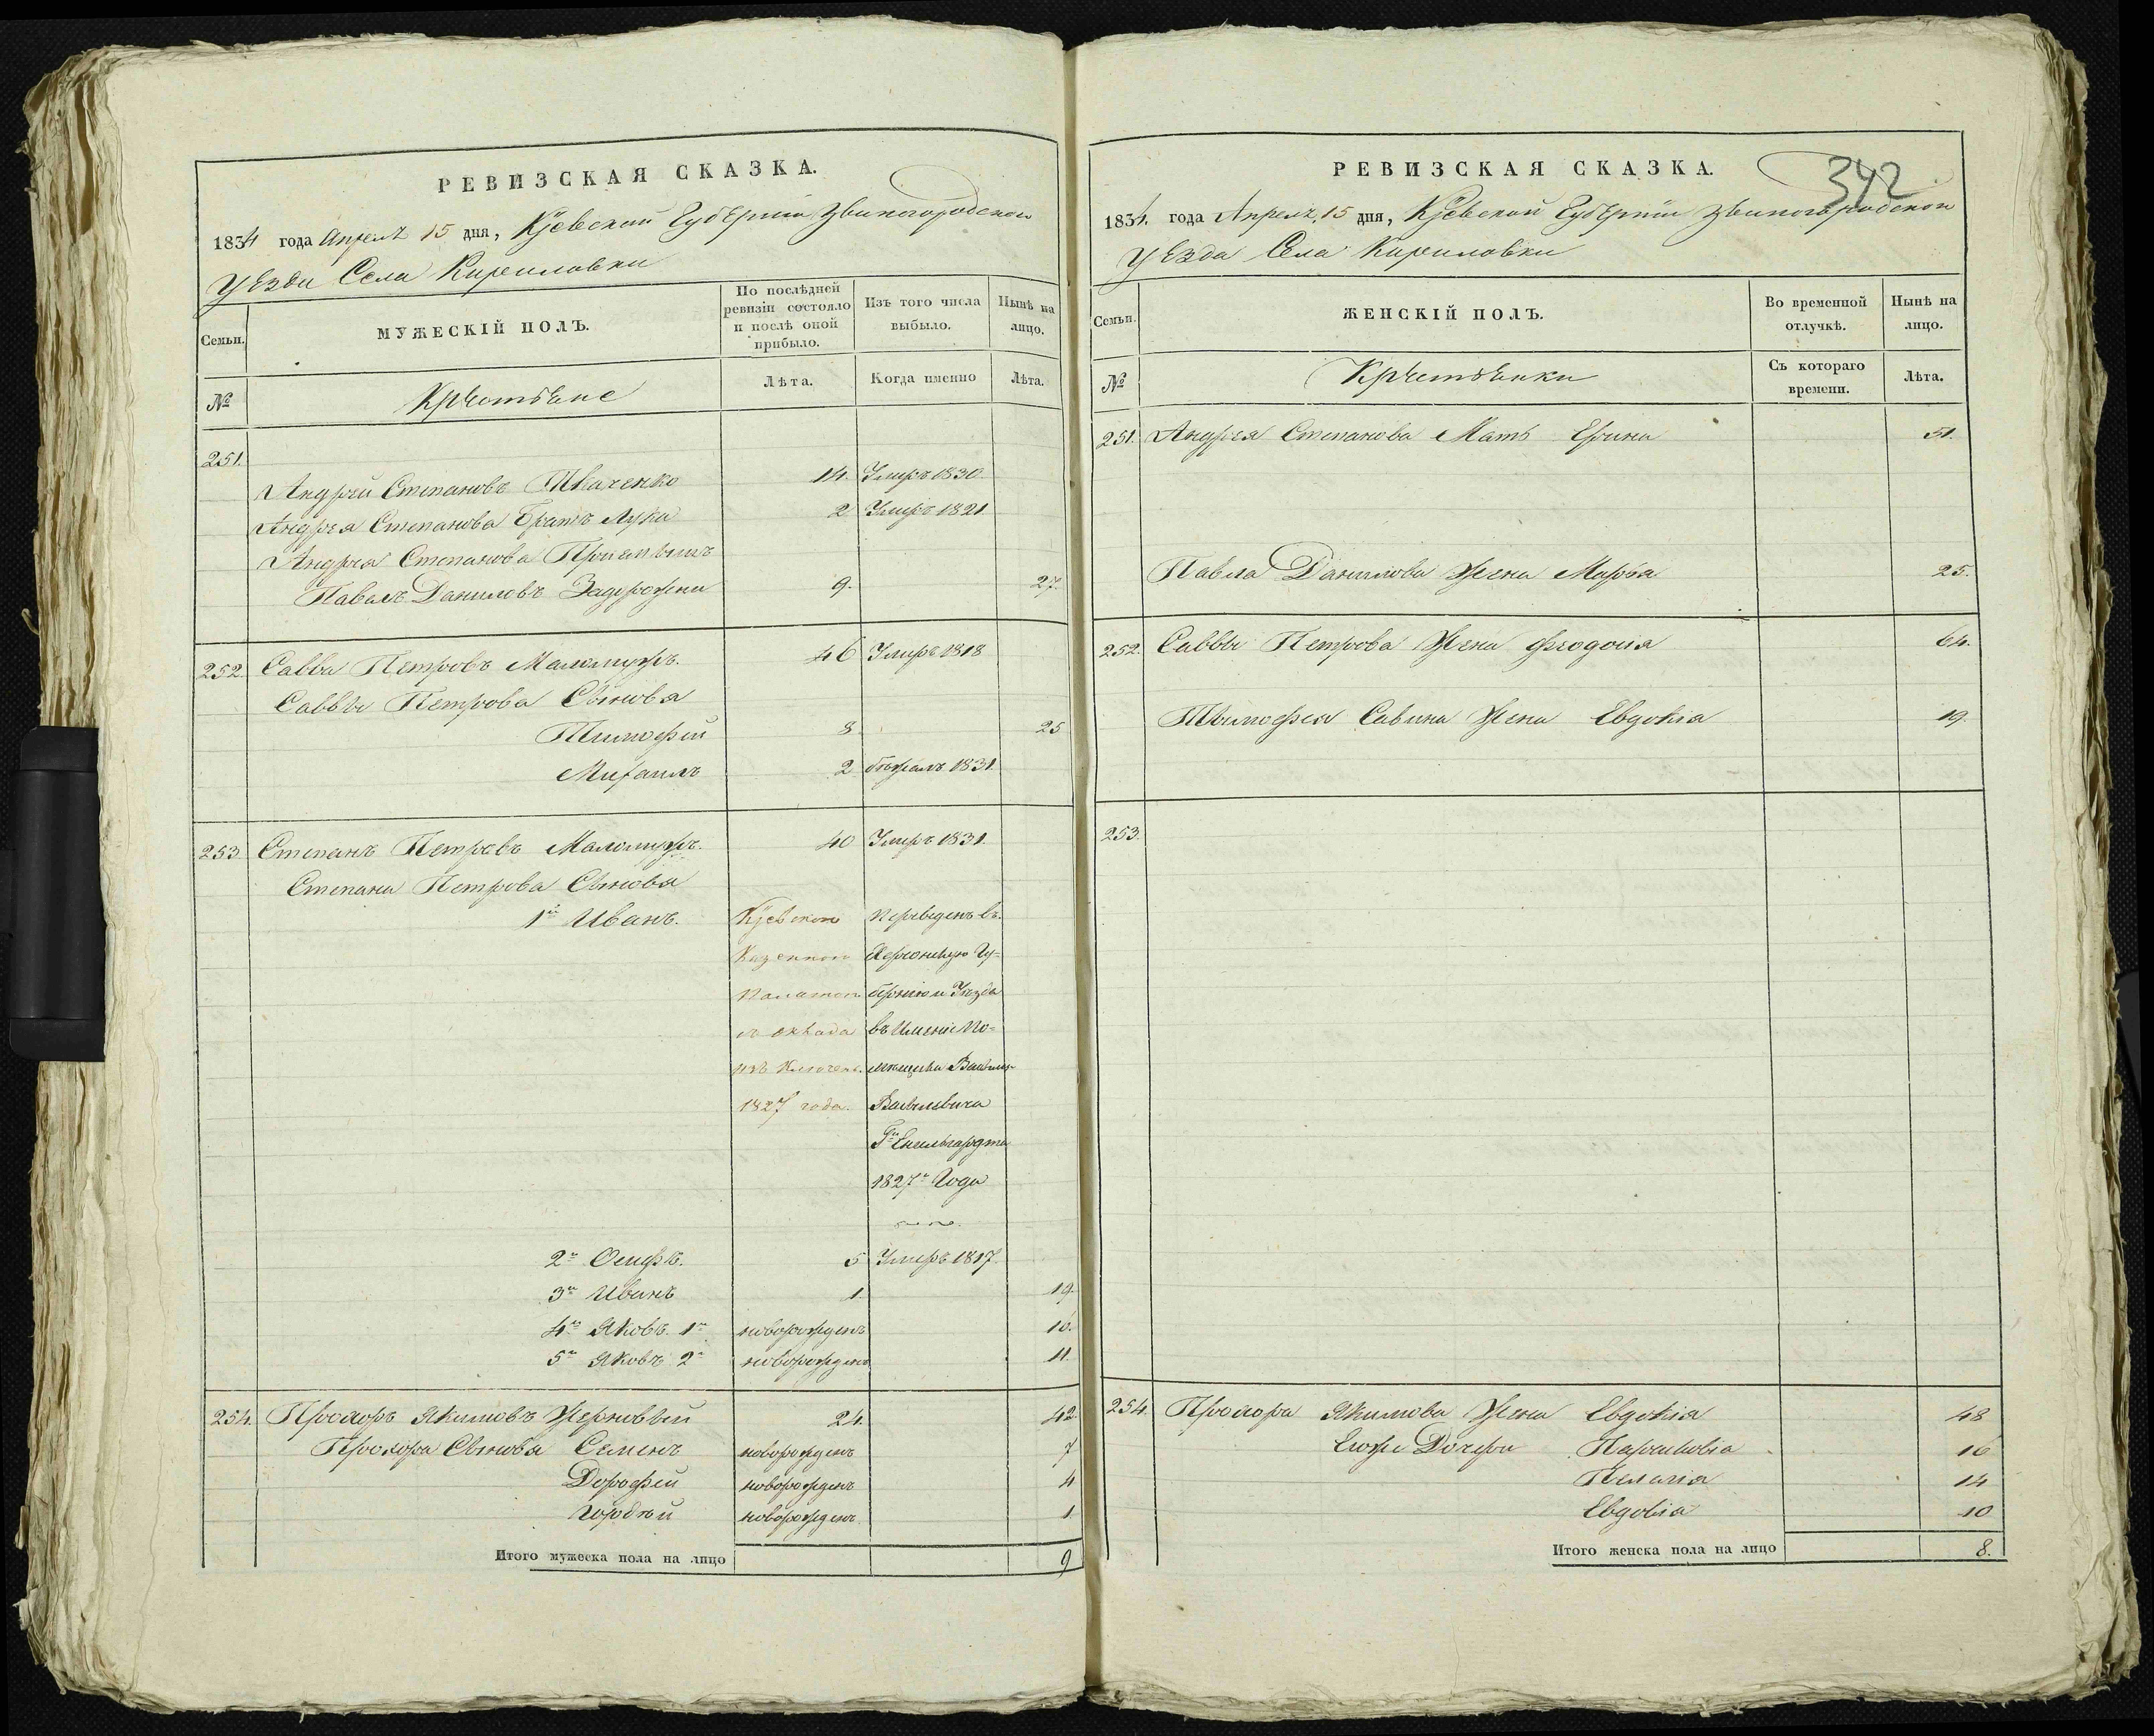 РЕВИЗСКАЯ СКАЗКА.
1834 года Апреля 15 дня, Кіевской Губерніи Звиногородского
уезда Села Кириловки
Семьи.
МУЖЕСКІЙ ПОЛЪ.
По послѣдней ревизіи состояло и послѣ оной прибыло.
Изъ того числа выбыло.
Нынѣ на лицо.
№
Крестьяне
Лѣта.
Когда именно
Лѣта.
251.
Андрей Степановъ Ткаченко 14. Умеръ 1830
Андрея Степанова Братъ Лука 2 Умеръ 1821.
Андрея Степанова Приемышъ
Павелъ Даниловъ Задорожни 9. 27.
252. Савва Петровъ Маломужъ. 46 Умеръ 1818
Саввы Петрова Сыновья
Тимофей 8 25
Михаилъ 2 бежалъ 1831.
253. Степанъ Петровъ Маломужъ. 40 Умеръ 1831.
Степана Петрова Сыновья
1й Иванъ. Кіевскою Переведенъ въ
Казенною Херсонскую Гу=
Палатою бернію и Уезда
съ оклада въ Имение По=
изключенъ. мещика Василия
1827 года. Васильевича
Гна Енгельгардта
1827го Года
2й Осипъ. 5 Умеръ 1817.
3й Иванъ 1. 19.
4й Яковъ. 1й новорожденъ 16.
5й Яковъ 2й новорожденъ 11.
254. Прохоръ Якимовъ Жерновый 24. 42.
Прохора Сыновья Семенъ новорожденъ 7
Дорофей новорожденъ 4
Гордѣй новорожденъ 1
Итого мужеска пола на лицо 9
РЕВИЗСКАЯ СКАЗКА.
342
1834. года Апреля 15 дня, Кіевской Губерніи Звиногородского
уезда Села Кириловки
Семьи.
ЖЕНСКІЙ ПОЛЪ.
Во временной отлучкѣ.
Нынѣ на лицо.
№
Крестьянки
Съ котораго времени.
Лѣта.
251. Андрея Степанова Мать Ерина 51.
Павла Данилова Жена Марья 25.
252. Саввы Петрова Жена Феодосия 64.
Тимофея Савина Жена Евдокия 19.
253.
254. Прохора Якимова Жена Евдокия 48
Егоже Дочери Парасковія 16
Пелагия 14
Евдокия 10
Итого женска пола на лицо 8.